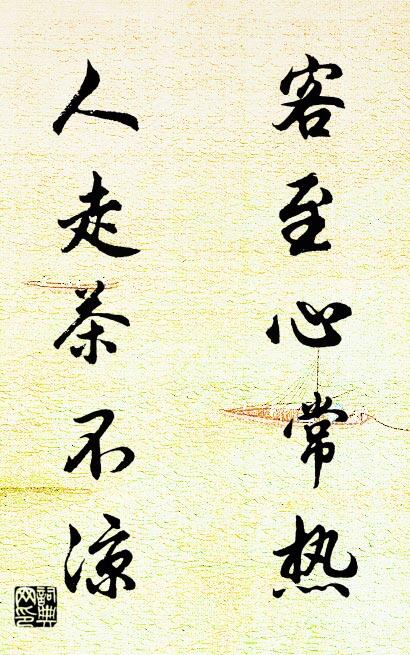 客至心常热
人走茶不凉